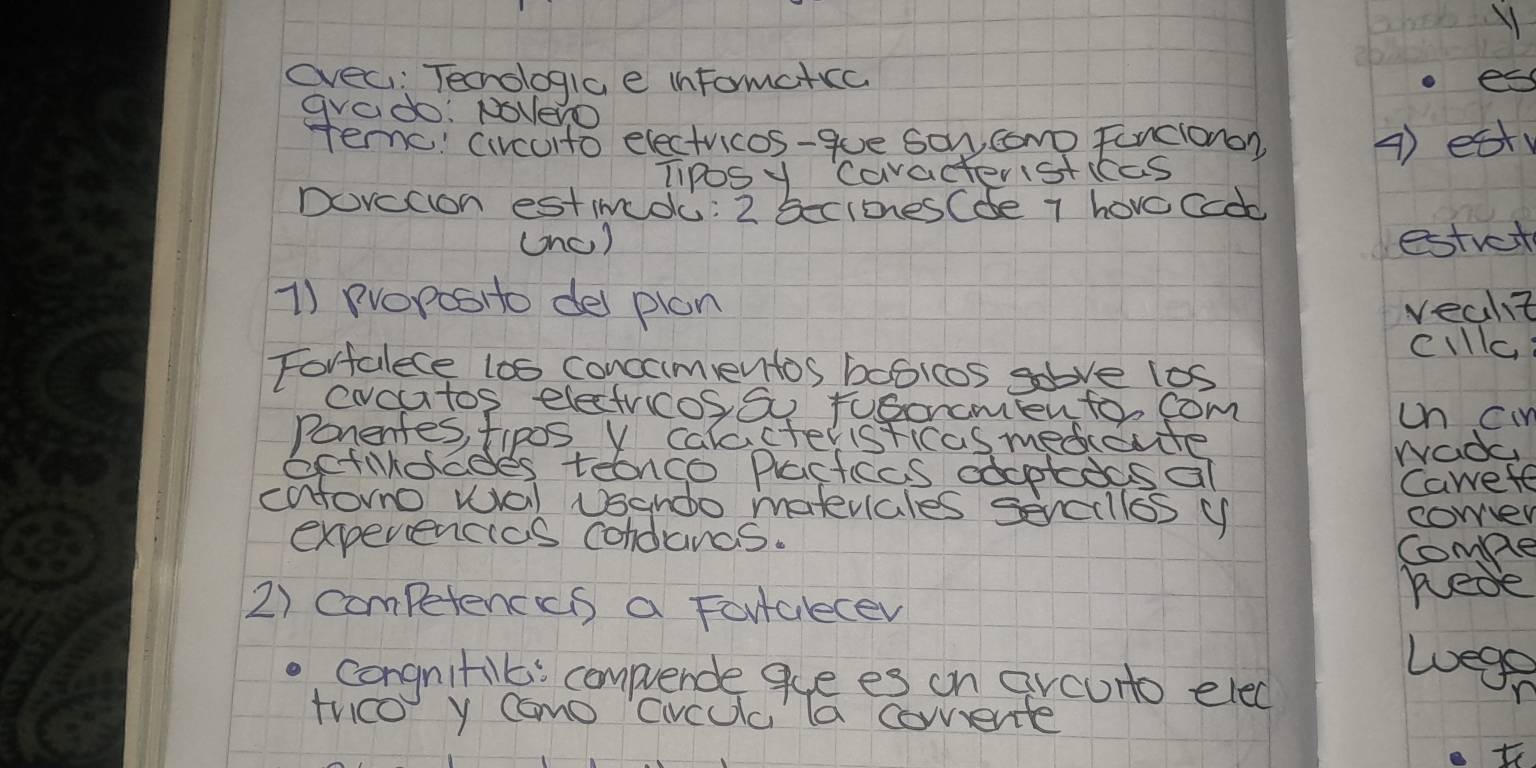 area: Tecnologia e informatica
grado: Noveno
Tema: circuito electricos - que son, como Funcionan,
Tipos y caracteristicas
Duracion estimada: 2 secciones (de 1 hora cada
una)
1) proposito del plan
Fortalece los conocimientos basicos sobre los
circuitos electricos, su funcionamiento, com
ponentes, tipos y caracteristicas mediante
actividades teorico practicas adaptadas al
entorno rural usando materiales sencillos y
experiencias cotidianas.
2) competencias a Fortalecer
• congnitiva: comprende que es un circuito elec
trico y como circula la corriente
y
• es
4) estr
estrat
realiz
cilla:
un cir
rrada
carrete
corrier
comple
puede
Luego
n